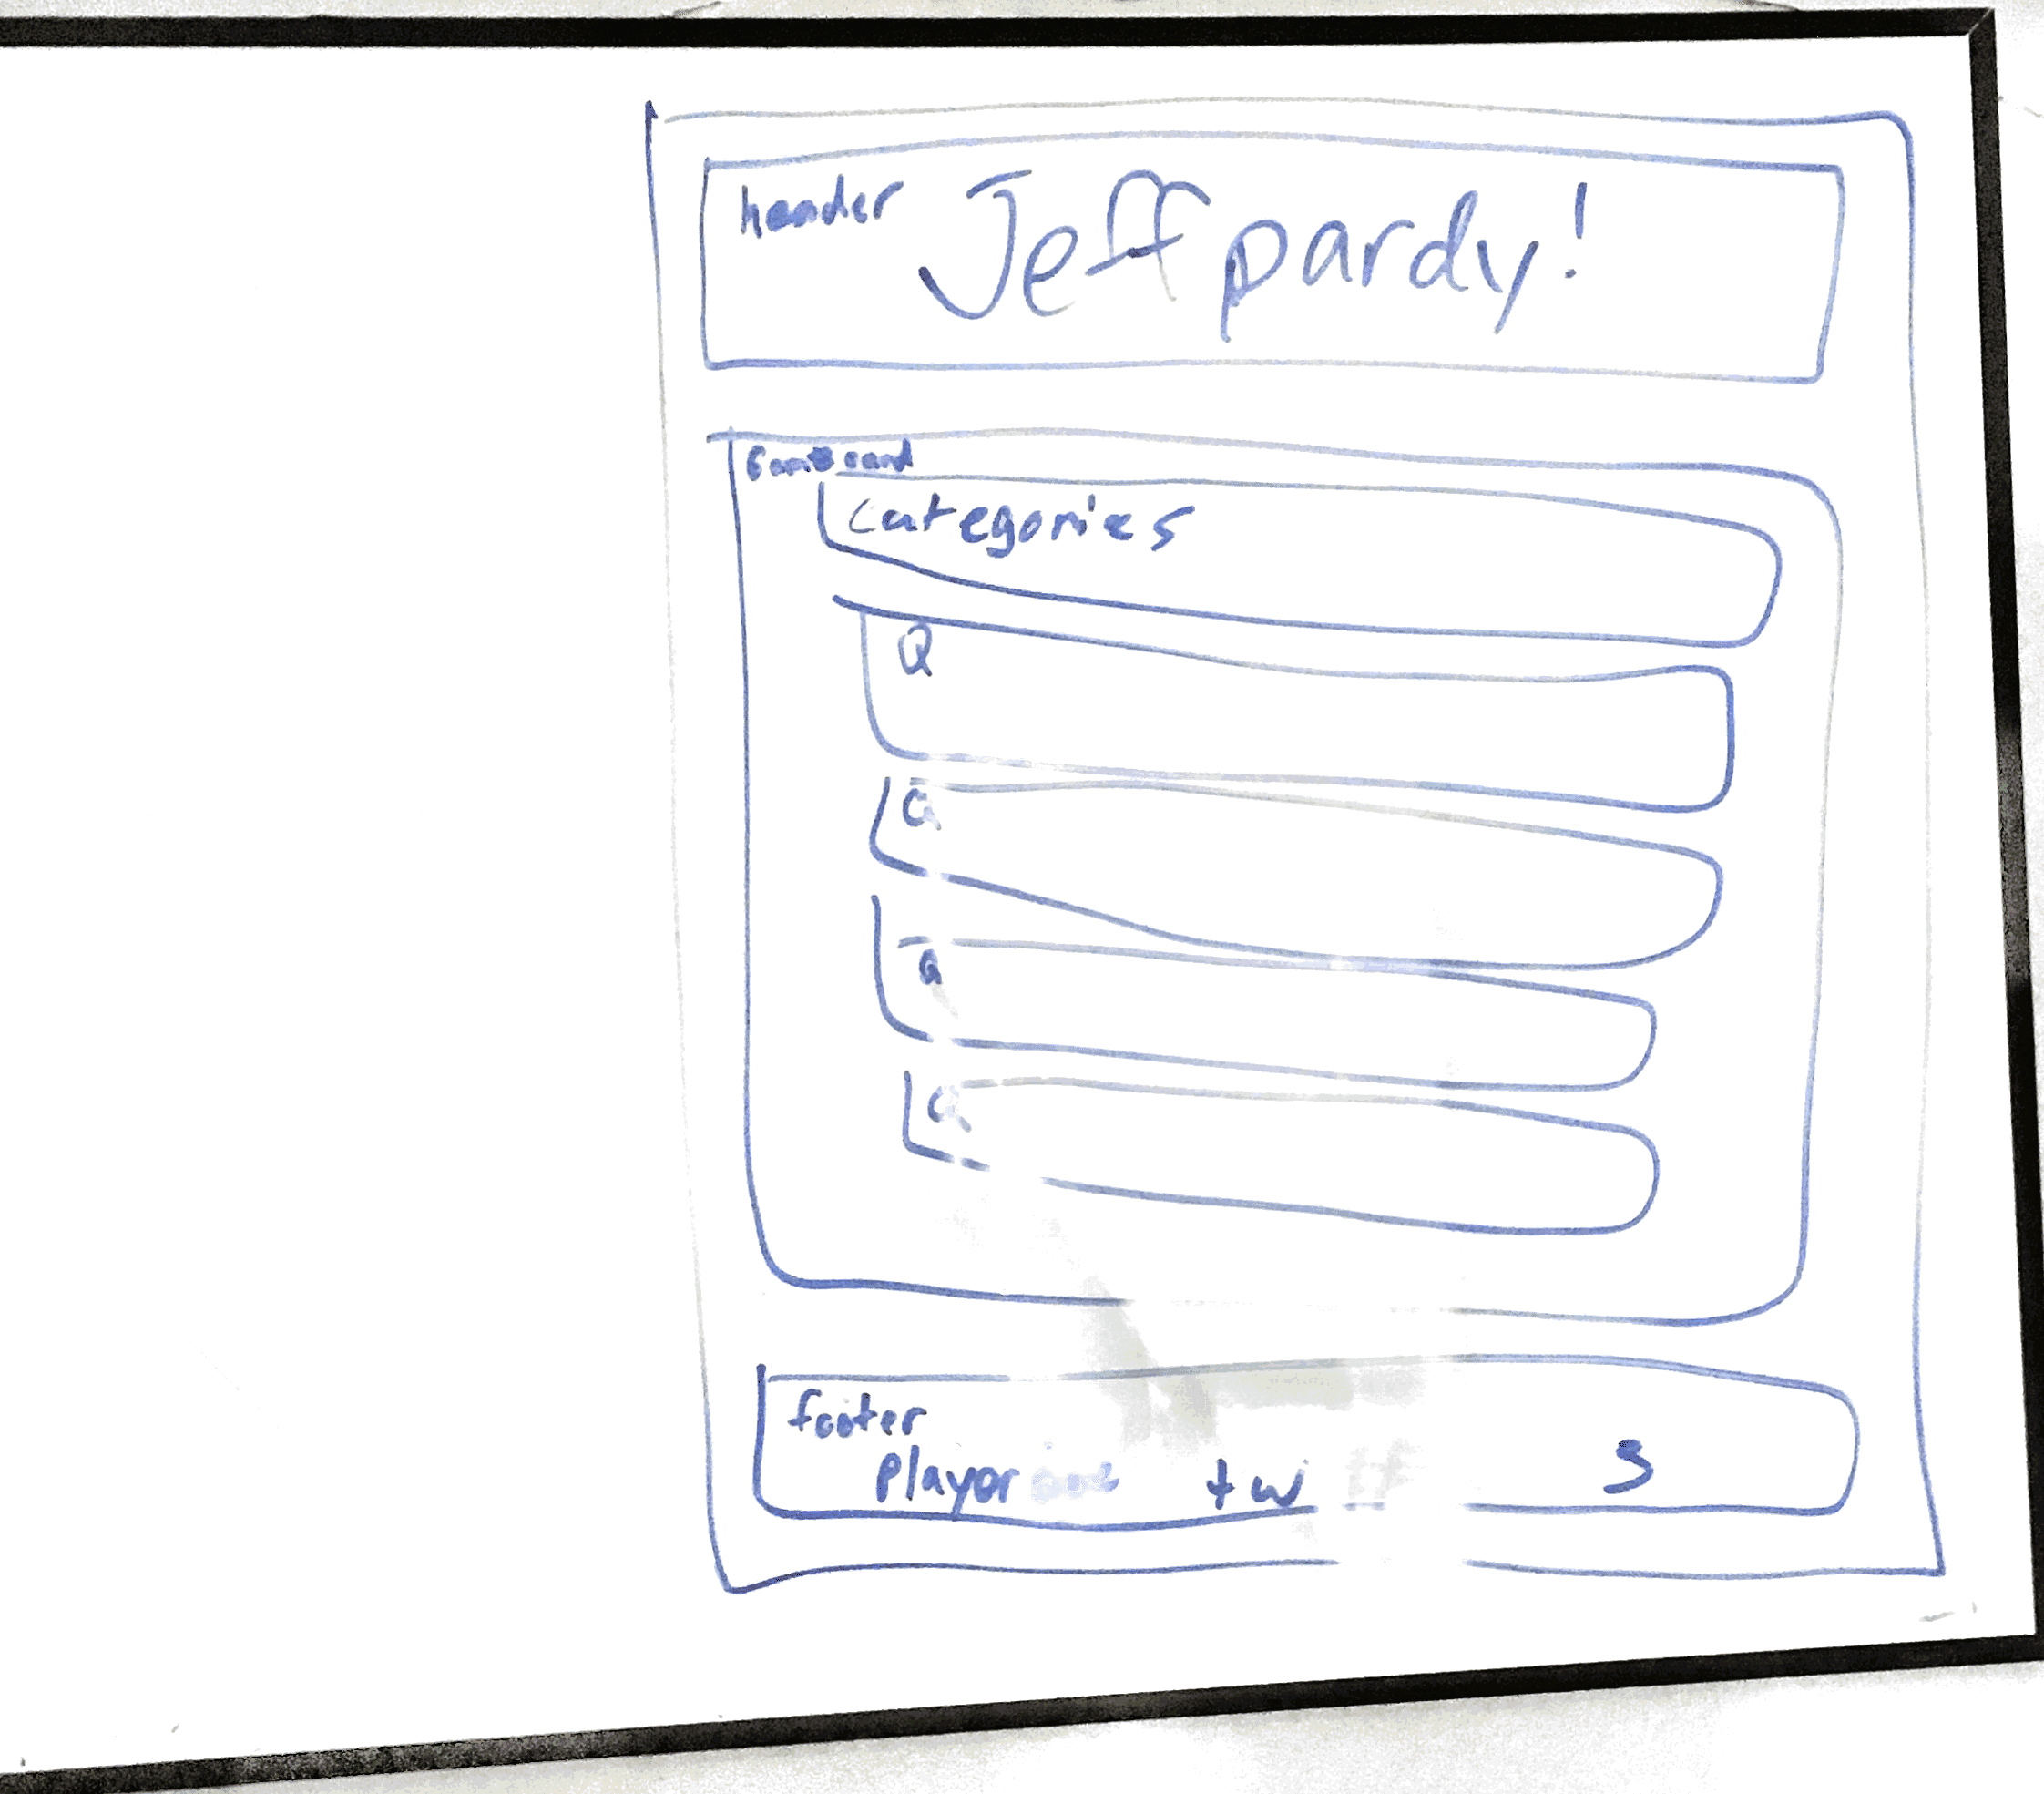 header
Jeffpardy!
Gameboard
Categories
Q
Q
Q
Q
footer
player one tw 3